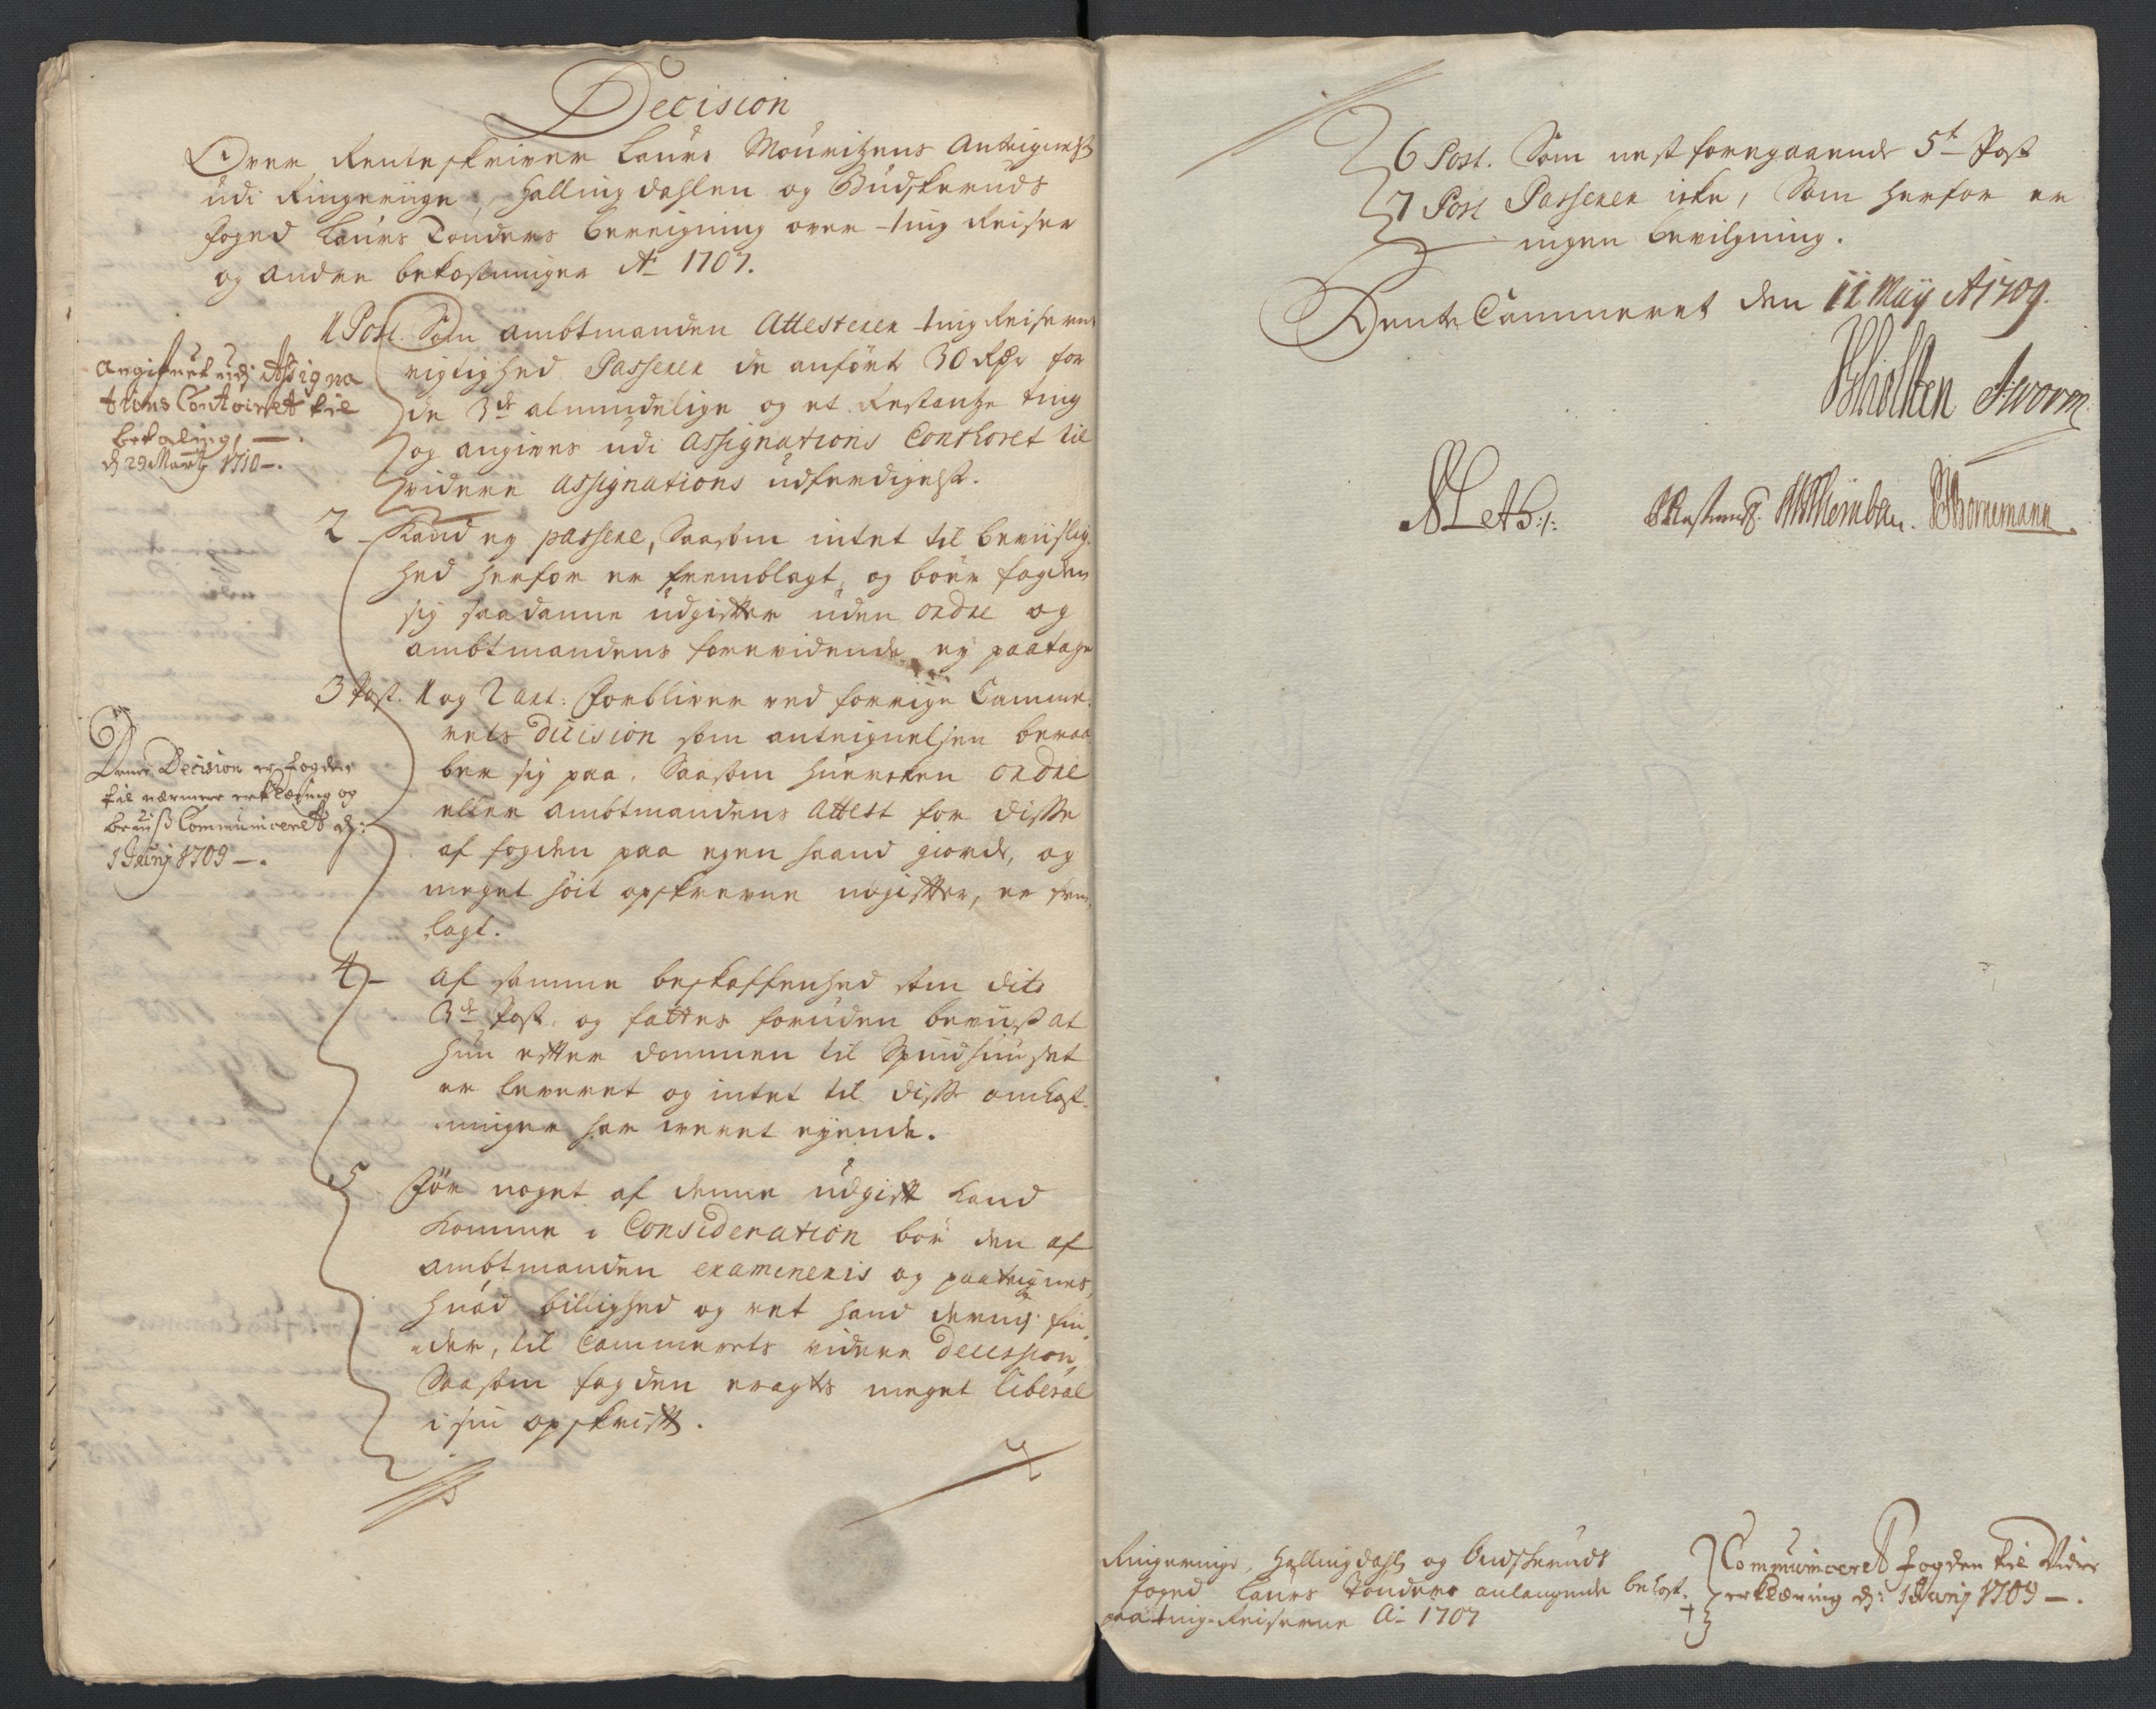 Decision
Over Renteskriver Laurs Mouritzens Antegnelse
udi Ringeriige, Hallingdahlen og Budskeruds
foged Laurs Tonders beregning over ting Reiser
og andre bekostninger Ao 1707.
1 Post. Som ambtmanden Attesterer tingReisernes
rigtighed Passerer de anförte 30 Rdr for
de 3de almindelige og et Restantze ting
og angives udi Assignations Conthoret til
videre assignations udferdigelse.
Angifvet udj Assigna
tions Contoiret til
betaling, —.
d 29 Martj 1710 —.
2 - Kand ey passere, Saasom intet til beviislig
hed herfor er fremblagt, og bör fogden
sig saadanne udgifter uden ordre og
ambtmandens forevidende ey paatage
3 Post. 1 og 2 art: Forbliver ved forrige Camme-
rets Dicision som antegnelsen beraa-
ber sig paa, Saasom huercken ordre
eller ambtmandens Attest for disse
af fogden paa egen haand giorde, og
meget höit opskrevne udgifter, er frem
lagt.
Denne Decision er fogden
til nærmere erklæring og
beviiß Communiceret d:
1 Junj 1709 —.
4 - Af samme beskaffenhed som dito
3de Post. og fattes foruden beviiß at
hun efter dommen til Spindhuuset
er leveret og intet til disse omkost-
ninger har veret eyende.
5 För noget af denne udgift kand
komme i Consideration bör den af
ambtmanden examineris og paategnes,
huad billighed og ret hand derudj fin-
der, til Cammerets videre Decission,
Saasom fogden eragtes meget liberal
i sin opskrift.
6 Post. Som nest foregaaende 5t Post
7 Post Passerer icke, Som herfor er
ingen bevilgning.
Rente Cammeret den 11 Maij Ao 1709.
Holsten JWorm
Bornemann
Ringeriige, Hallingdahl og Budskeruds
foged Laurs Tonders anlangende bekost.
paa ting-Reiserne Ao 1707
Communiceret fogden til Vider
erklæring d: 1 Junj 1709 —.